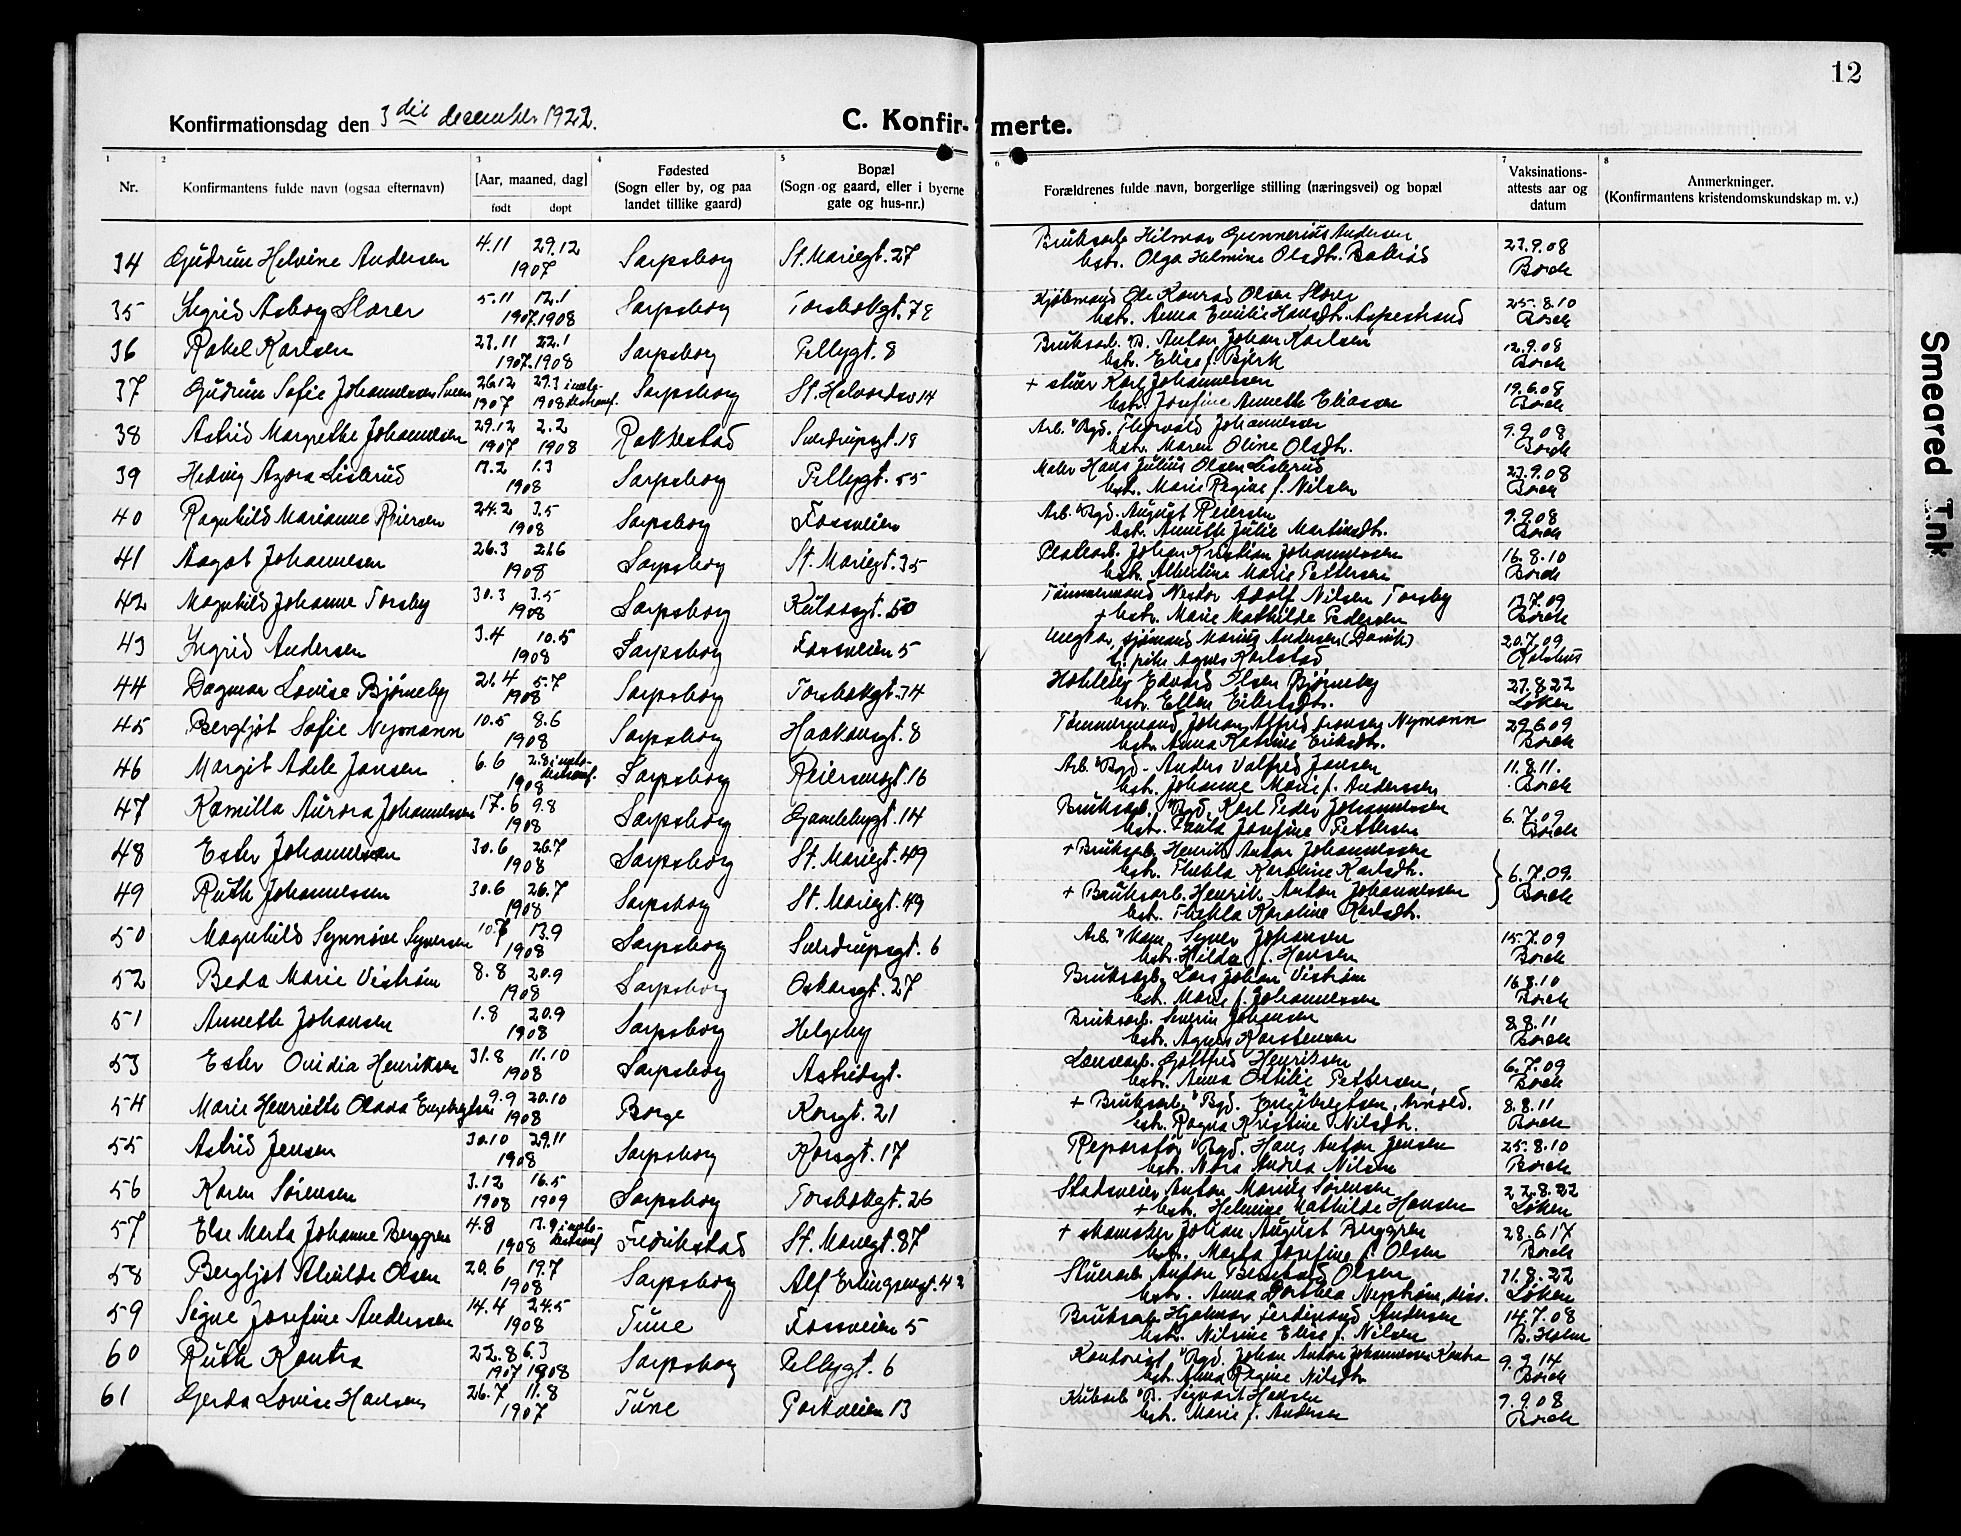 12
Konfirmationsdag den 3die december 1922.
C. Konfir- merte.
1 2 3 4 5 6 7 8
Nr. Konfirmantens fulde navn (ogsaa efternavn) [Aar, maaned, dag] født døpt Fødested (Sogn eller by, og paa landet tillike gaard) Bopæl (Sogn og gaard, eller i byerne gate og hus-nr.) Forældrenes fulde navn, borgerlige stilling (næringsvei) og bopæl Vaksinations-attests aar og datum Anmerkninger. (Konfirmantens kristendomskundskap m. v.)
34 Gudrun Helvine Andersen 4.11 29.12 1907 Sarpsborg St. Mariegt. 27 Bruksarb. Hilmar Gunnerius Andersen 23.9.08
hstr. Olga Helmine Olsdtr. Borch
35 Ingrid Asborg Slorer 5.11 1907 12.1 1908 Sarpsborg Torsbekgt. Kjøbmand Ole Konrad Olsen Slorer 25.8.10
hstr. Anna Emilie Hansdtr. Aspestrand Borch
36 Rakel Karlsen 23.11 1907 22.1 1908 Sarpsborg Pellygt. 8 Bruksarb. Anton Johan Karlsen 12.9.08
hstr. Elise f. Bjerk Borch
37 Gudrun Sofie Johannessen 26.12 1907 29.3 1908 Sarpsborg St. Halvardsv 14 + stuer Karl Johannessen 19.6.08
hstr. Josefine Annette Eliassen Borch
38 Astrid Margrethe Johannesen 29.12 1907 2.2 1908 Rakkestad Sverdrupsgt. 18 Arb. Bgd. Thorvald Johannessen 9.9.08
hstr. Maren Oline Olsdtr. Borch
39 Hedvig Azora Lislerud 13.2 1.3 1908 Sarpsborg Pellygt. 55 Maler Hans Julius Olsen Lislerud 23.9.08
hstr. Marie Regine f. Nilsen Borch
40 Ragnhild Marianne Reiersen 24.2 3.5 1908 Sarpsborg Fossveien Arb. Bgd. August Reiersen 9.9.08
hstr. Annette Julie Martinsdtr. Borch
41 Aagot Johannesen 26.3 21.6 1908 Sarpsborg St. Mariegt. 35 Johan Kristian Johannessen 16.8.10
hstr. Albertine Marie Pettersen Borch
42 Magnhild Johanne Torsby 30.3 3.5 1908 Sarpsborg Kulaasgt. 50 Tømmermand Nestor Adolf Nilsen Torsby 13.7.09
+ hstr. Marie Mathilde Pedersen Borch
43 Ingrid Andersen 3.4 10.5 1908 Sarpsborg Fossveien 5 Ungkar, sjømand Marius Andersen 20.7.09
pike Agnes Karlstad
44 Dagmar Lovise Bjørneby 21.4 5.7 1908 Sarpsborg Torsbekgt. 34 Edvard Olsen Bjørneby 27.8.22
hstr. Ellen Eilertsdtr. Løken
45 Bergljot Sofie Nymann 10.5 8.6 1908 Sarpsborg Haakonsgt. 8 Tømmermand Johan Alfred Nymann 29.6.09
hstr. Anna Katrine Eriksdtr. Borch
46 Margit Adele Jansen 6.6 2.8 1908 Sarpsborg Reiersensgt. 16 Arb. Bgd. Anders Valfred Jansen 11.8.11.
hstr. Johanne Marie f. Andersen Borch
47 Kamilla Aurora Johannessen 17.6 9.8 1908 Sarpsborg Gamlebygt. 14 Bruksarb. Bgd. Karl Peder Johannessen 6.7.09
hstr. Paula Josefine Pettersen Borch
48 Ester Johannessen 30.6 26.7 1908 Sarpsborg St. Mariegt. 49 + Bruksarb. Henrik Anton Johannessen
hstr. Thekla Karoline Karlsdtr. 6.7.09.
49 Ruth Johannessen 30.6 26.7 1908 Sarpsborg St. Mariegt. 49 + Bruksarb. Henrik Anton Johannessen Borch
hstr. Thekla Karoline Karlsdtr.
50 Magnhild Synnøve Syversen 10.7 13.9 1908 Sarpsborg Sverdrupsgt. 6 Arb. Syver Johansen 15.7.09
hstr. Hilda f. Hansen Borch
52 Beda Marie Vistrøm 8.8 20.9 1908 Sarpsborg Oskarsgt. 27 Bruksarb. Lars Johan Vistrøm 16.8.10
hstr. Marie f. Johannessen Borch
51 Annette Johansen 1.8 20.9 1908 Sarpsborg Helgeby Bruksarb. Severin Johansen 8.8.11
hstr. Agnes Karstensen Borch
53 Ester Ovidia Henriksen 31.8 11.10 1908 Sarpsborg Astridsgt. Gottfred Henriksen 6.7.09
hstr. Anna Ottilie Pettersen, Borch
54 Marie Henriette Olava Engebregtsen 9.9 20.10 1908 Borge Korsgt. 21 + Bruksarb. Bgd. Engebregtsen, Arnold. 8.8.11
hstr. Ragna Kristine Nilsdtr. Borch
55 Astrid Jensen 30.10 29.11 1908 Sarpsborg Korsgt. 17 Reparatør Bgd. Hans Anton Jensen 25.8.10
hstr. Nora Andrea Nilsen Borch
56 Karen Sørensen 3.12 1908 16.5 1909 Sarpsborg Torsbekgt. 26 Stadsveier Anton Marius Sørensen 22.8.22
+ hstr. Helmine Mathilde Hansen Løken
57 Else Merta Johanne Berggren 4.8 13.9 1908 Fredrikstad St. Mariegt. 87 + skomaker Johan August Berggren 28.6.17
hstr. Marta Josefine f. Olsen Borch
58 Bergljot Alvilde Olsen 20.6 19.7 1908 Sarpsborg Alf Erlingsensgt. 42 Stuerarb. Anton Bernhard Olsen 31.8.22
hstr. Anna Dorthea Nystrøm, diss. Løken
59 Signe Josefine Anderssen 14.4 24.5 1908 Tune Fossveien 5 Bruksarb. Hjalmar Ferdinand Andersen 14.7.08
hstr. Nilsine Elise f. Nilsen B. Holm
60 Ruth Kontra 22.8 1907 6.3 1908 Sarpsborg Pellygt. 6 Kontorist Bgd. Johan Anton Johannessen Kontra 9.9.14
hstr. Anna Regine Nilsdtr Borch
61 Gerda Lovise Hansen 26.7 11.8 1907 Tune Parkveien 13 Sigvart Hansen 7.9.08
hstr. Marie f. Andersen Borch
Smeared Ink